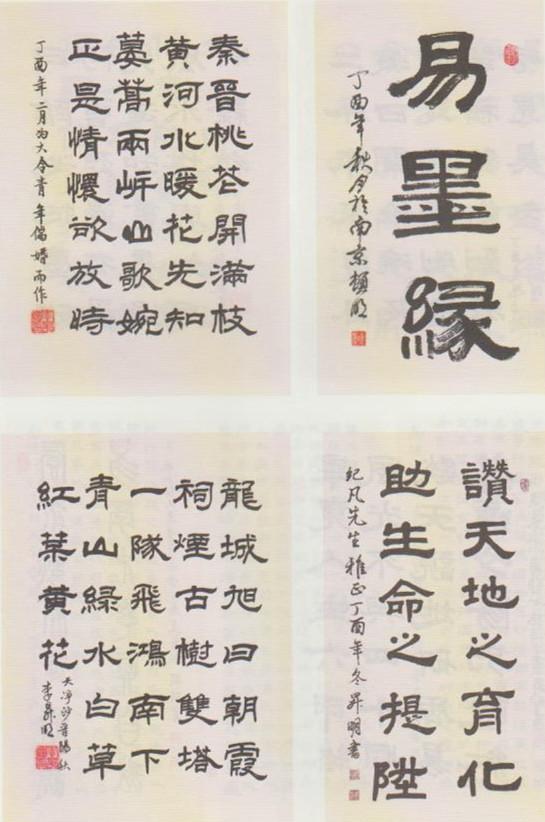 易墨緣
丁酉年秋月於南京
秦晉桃花開滿枝
黃河水暖花先知
蔞蒿兩岸山歌婉
正是情懷欲放時
丁酉年二月為大令青年婚而作
讚天地之育化
助生命之提陞
紀凡先生雅正丁酉年冬昇明書
龍城旭日朝霞
祠煙古樹雙塔
一隊飛鴻南下
青山綠水白草
紅葉黃花
天淨沙晉陽秋
李昇明